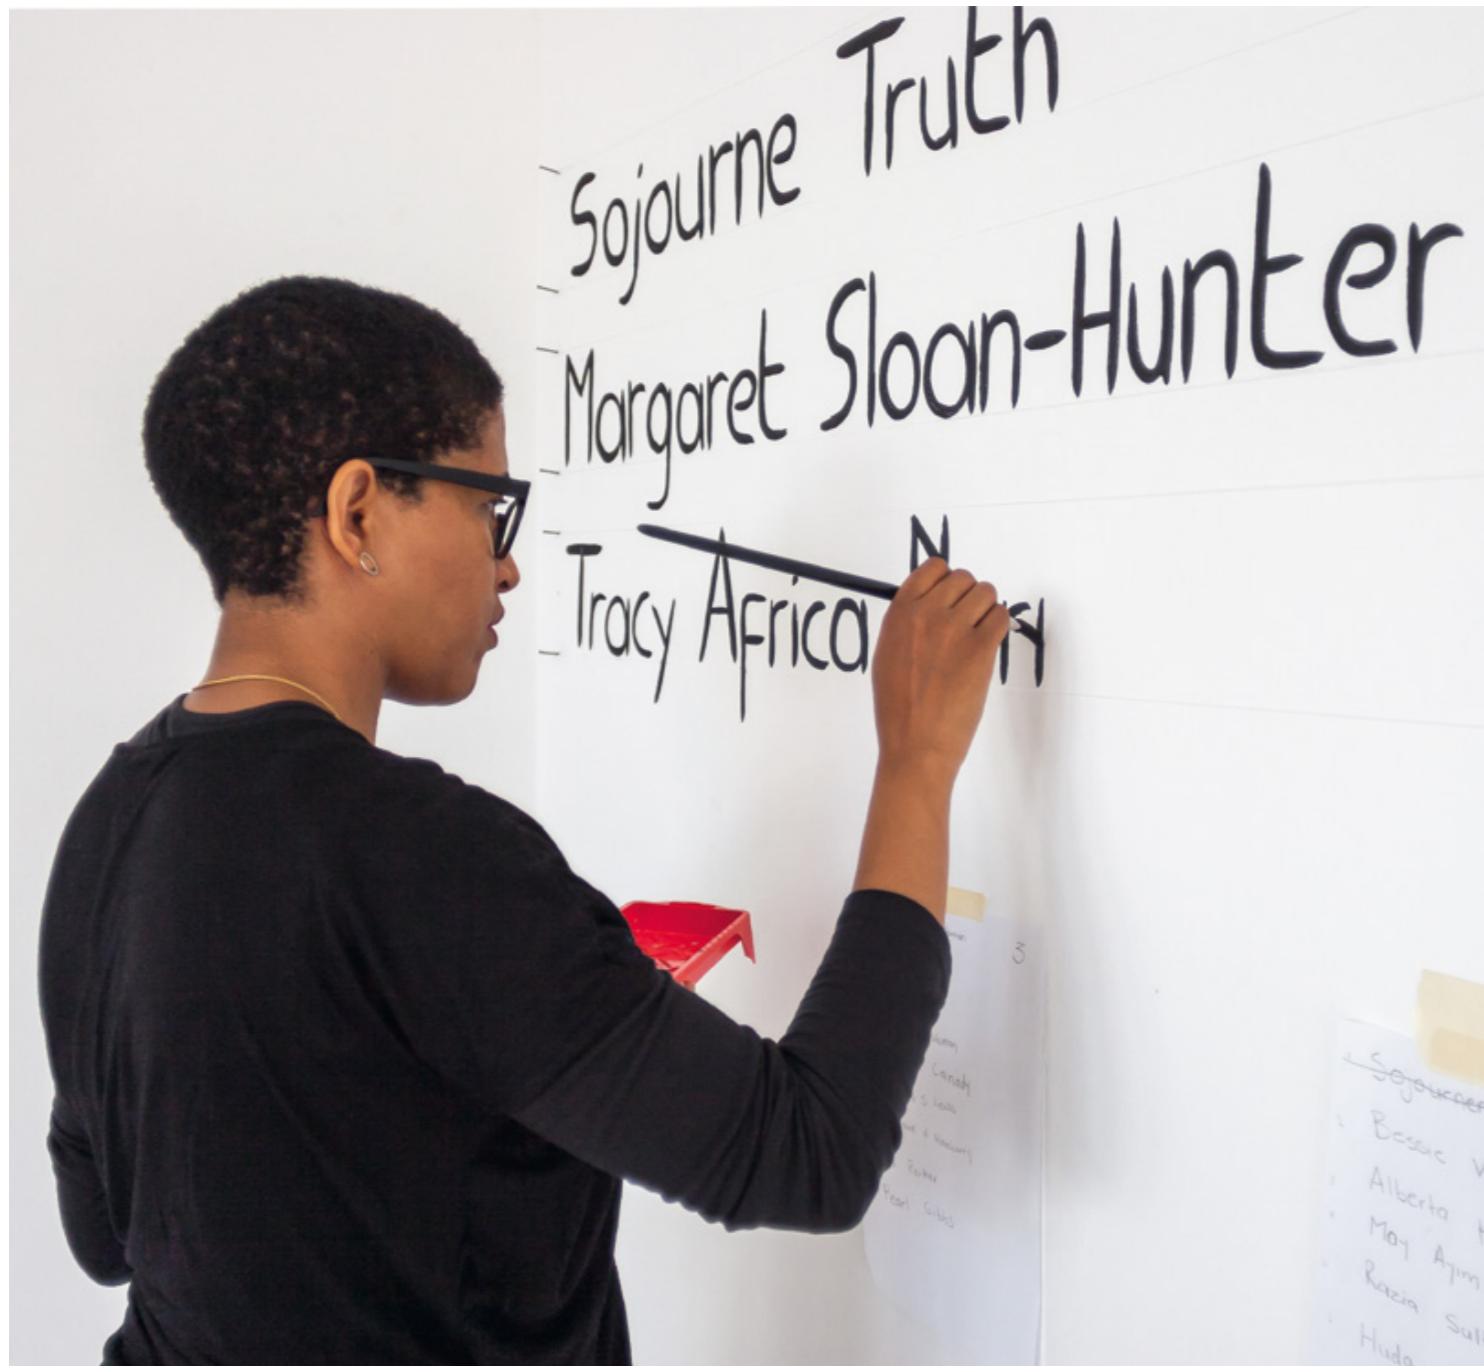 Sojourne Truth
Margaret Sloan-Hunter
Tracy Africa N
3
Canady
Pearl Gibbs
Sojourner
Bessie
Alberta
May Ayim
Razia
Huda